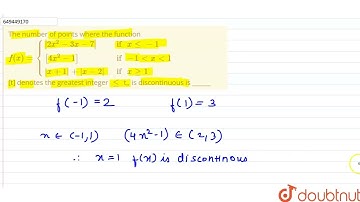 649449170
The number of points where the function
f(x) = { |2x² − 3x − 7| if x ≤ − 1
[4x² − 1] if − 1 < x < 1
|x + 1| + |x − 2| if x ≥ 1
[t] denotes the greatest integer ≤ t, is discontinuous is
f(-1) = 2 f(1) = 3
x ∈ (-1,1) (4x²-1) ∈ (2,3)
∴ x=1 f(x) is discontinous
doubtnut